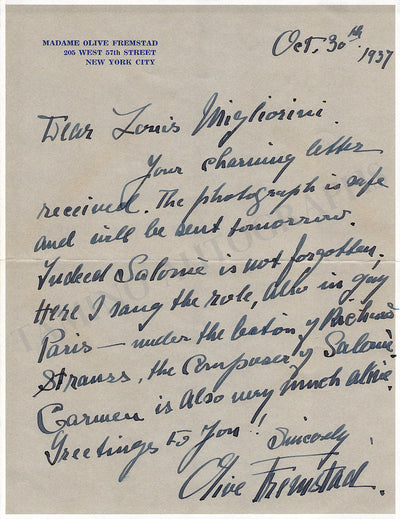 MADAME OLIVE FREMSTAD
205 WEST 57th STREET
NEW YORK CITY
Oct. 30th
1937
Dear Louis Migliorini.
Your charming letter
received. The photograph is safe
and will be sent tomorrow.
Indeed Salomè is not forgotten,
Here I sang the role, also in gay
Paris — under the baton of Richard
Strauss, the Composer of Salomè
Carmen is also very much alive.
Greetings to You!!
Sincerely,
Olive Fremstad.